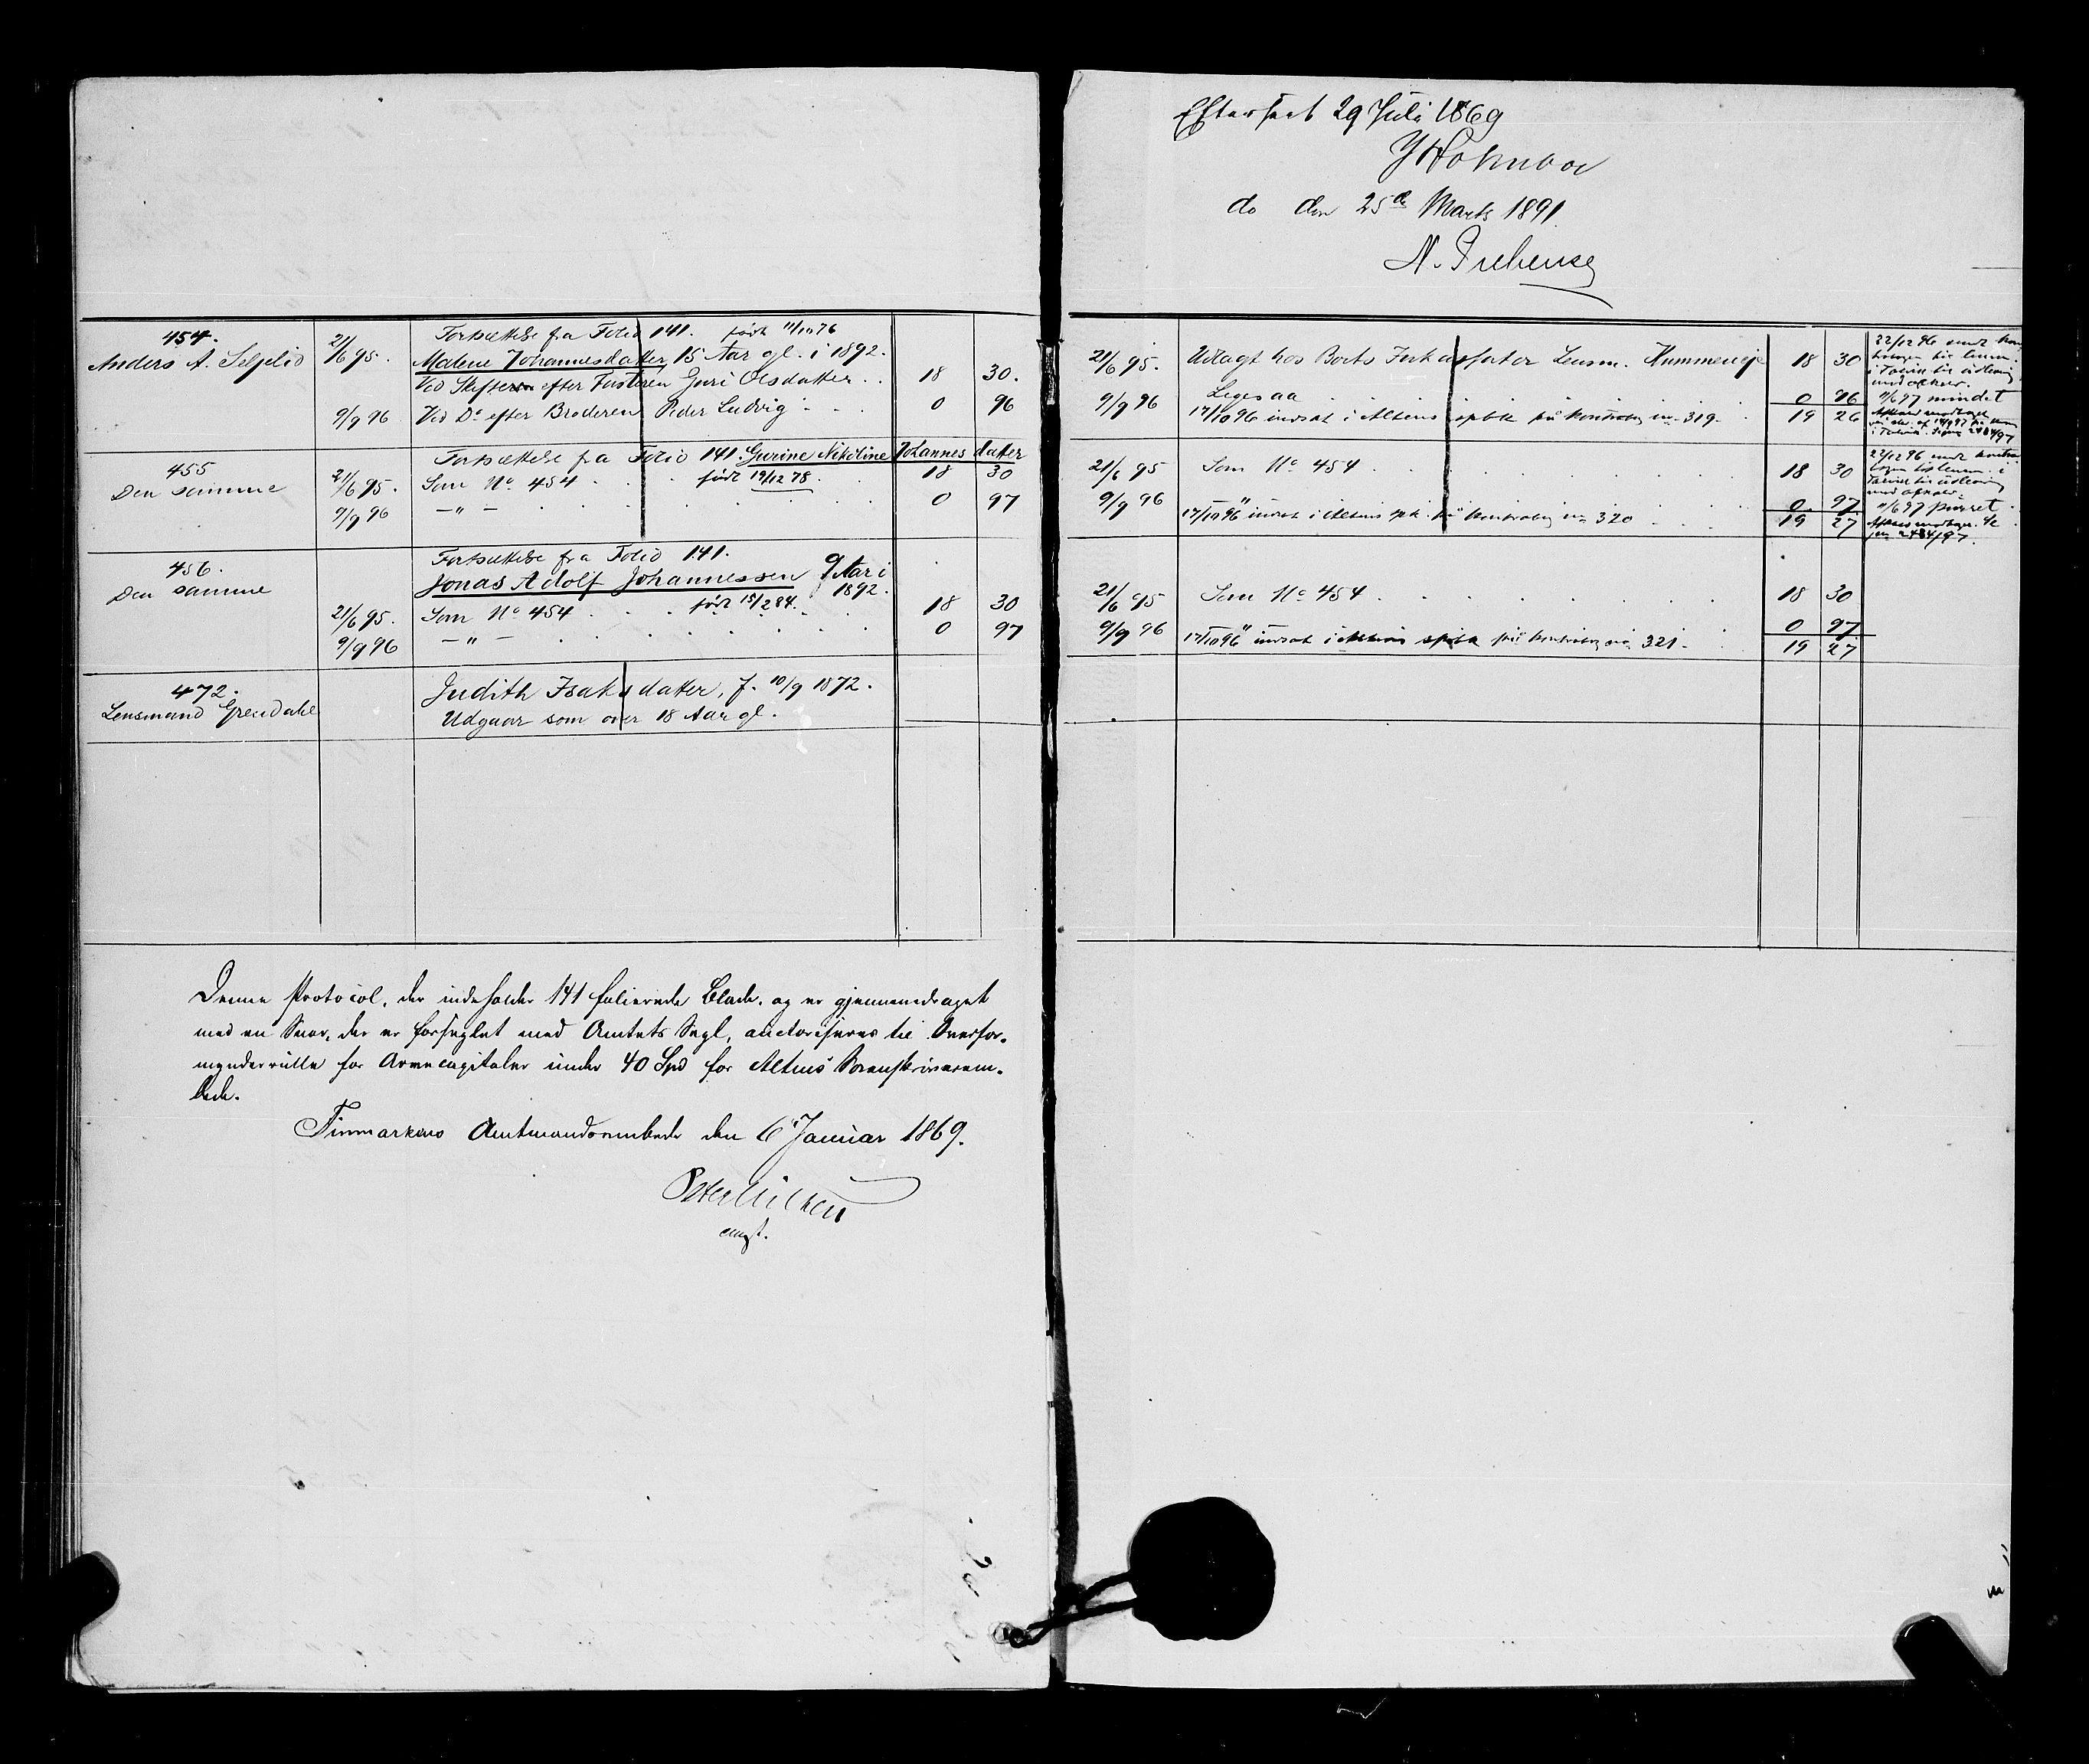 454.
Anders A. Selfelid
21/6 95.
Fortsættelse fra Folio 141. født 11/10 76
Malene Johannesdatter, 15 Aar gl. i 1892.
Ved Skifterne efter Fasteren Guri Olsdatter . . 18 30.
9/9 96 Ved Do efter Broderen Peder Ludvig . . . 0 96
455
Den samme
Fortsættelse fra Folio 141. Gurine Nikoline Johannesdatter
21/6 95. Som No 454 . . . født 19/12 78. 18 30
9/9 96 —"— . . . 0 97
456.
Den samme
Fortsættelse fra Folio 141.
Jonas Adolf Johannessen 9 Aar i 1892.
21/6 95. Som No 454 . . . født 15/2 84. 18 30
9/9 96 —"— . . . 0 97
472.
Lensmand Grendahl
Judith Isaksdatter, f. 10/9 1872.
Udgaar som over 18 Aar gl.
Denne Protocol, der indeholder 141 folierede Blade, og er gjennemdraget
med en Snor, der er forseglet med Amtets Segl, auctoriseres til Overfor-
mynderrulle for Arvecapitaler under 40 Spd for Altens Sorenskriverem-
bede.
Finmarkens Amtmandsembede den 6 Januar 1869.
const.
Efterseet 29 Juli 1869
J Holmboe
do den 25de Marts 1891
21/6 95. Udlagt hos Borts Lensm. Kummeneje 18 30
9/9 96 0 96
17/10 96 indsat i Altens spbk på kontrabog no 319. 19 26
22/12 96 sendt
i Talvik til udlevering
mod afkald.
11/6 97 mindet
21/6 95 Som No 454 . . . 18 30
9/9 96 " 0 97
17/10 96 indsat i Altens spk. på kontrabog no 320 . . . 19 27
22/12 96 sendt kontra
bogen til lensm. i
Talvik til udlevering
mod afkald.
11/6 97 purret
21/6 95 Som No 454 . . . 18 30
9/9 96 " 0 97
17/10 96 indsat i Altens spbk på kontrabog no 321. 19 27